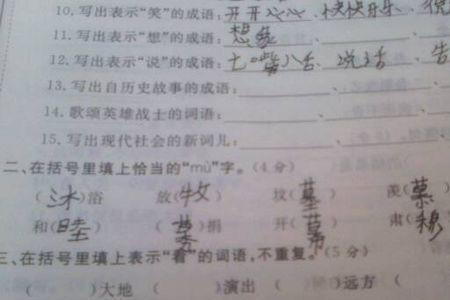 10.写出表示“笑”的成语:开开心心、快快乐乐、
11.写出表示“想”的成语:想象、
12.写出表示“说”的成语:七嘴八舌、说话、告
13.写出自历史故事的成语:
14.歌颂英雄战士的词语:
15.写出现代社会的新词儿:
二、在括号里填上恰当的“mù”字。(4分)
(沐)浴 放(牧) 坟(墓) 羡(慕)
和(睦) (募)捐 开(幕) 肃(穆)
三、在括号里填上表示“看”的词语,不重复。(5分)
( )大地 ( )演出 ( )远方 (